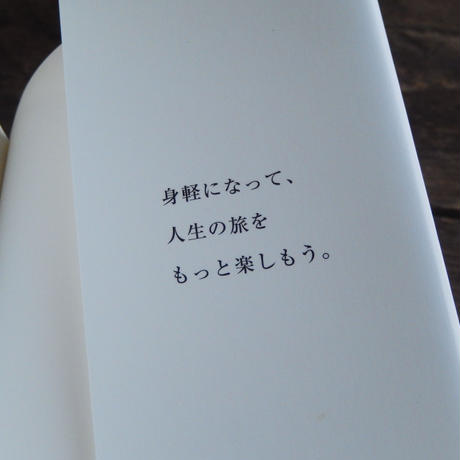 身軽になって、
人生の旅を
もっと楽しもう。